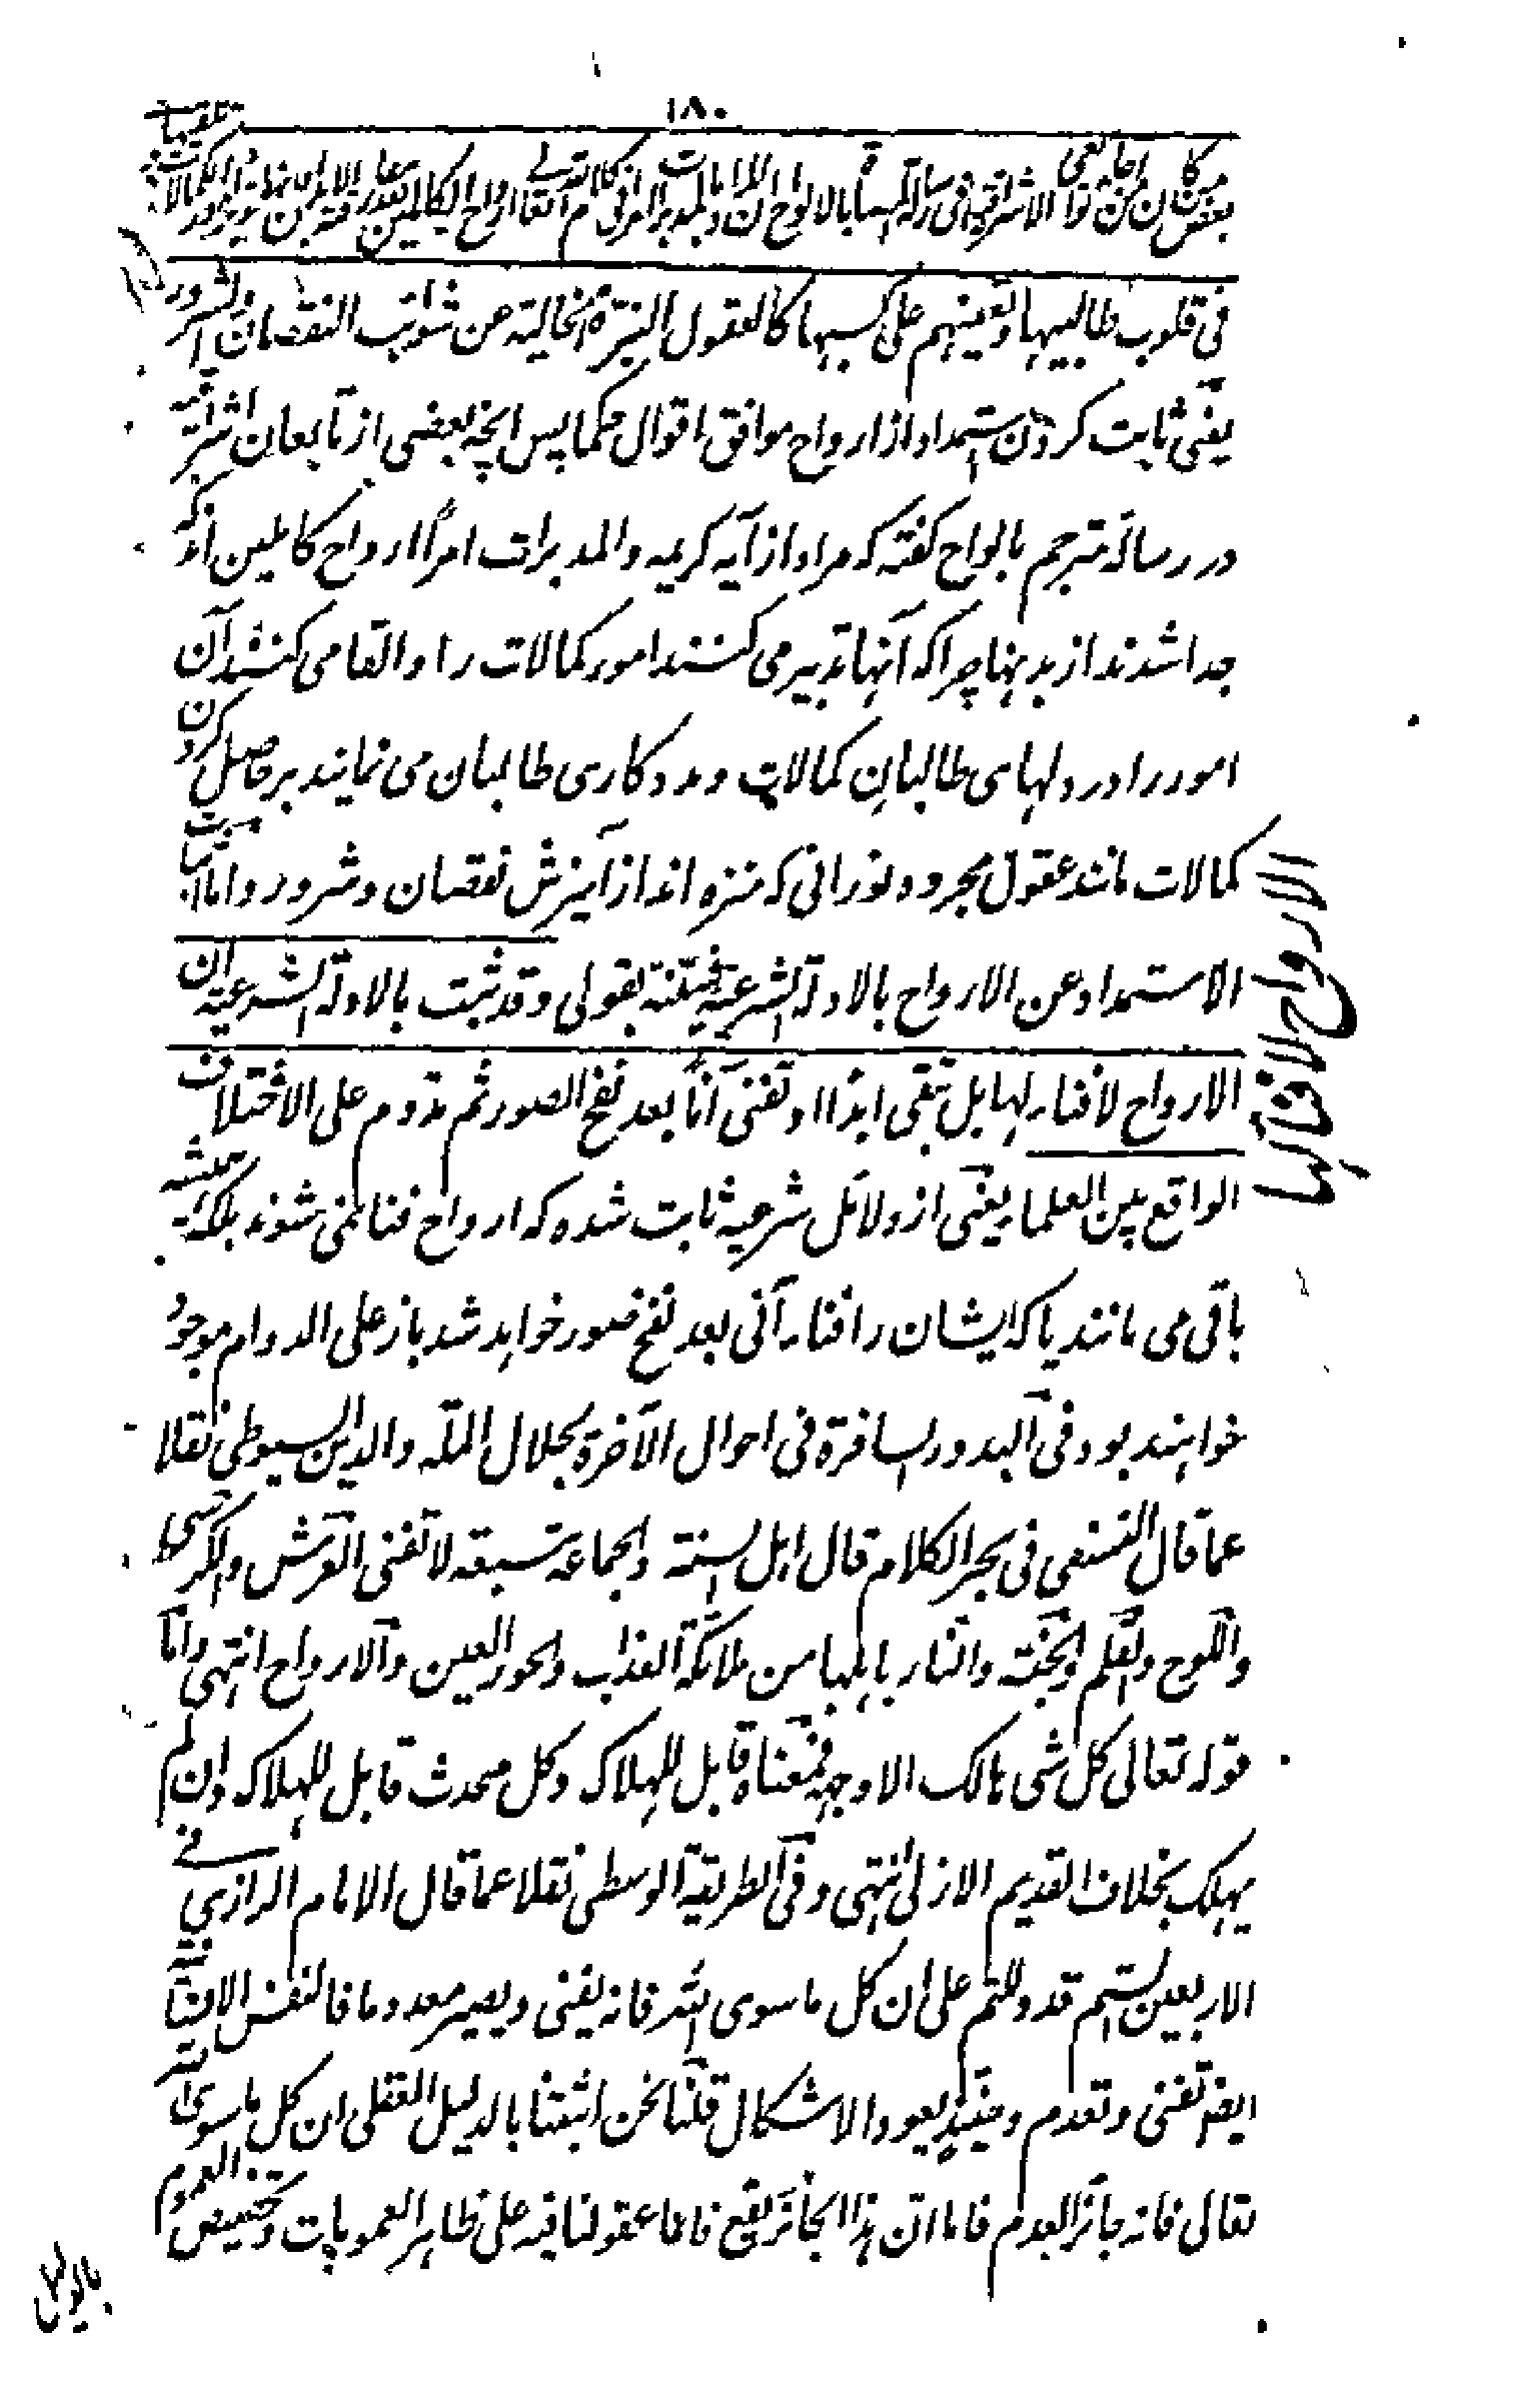 ۱۸۰
في قلوب طالبيها وتعينهم على كسبها كالعقول النيرة الخالية عن شوائب النقصان والشرور
یعنی ثابت کردن استمداد از ارواح موافق اقوال حکما پس انچه بعضی از تابعان اشراقیه
در رسالۀ مترجم بالواح گفته که مراد از آیه کریمه والمدبرات امرًا ارواح کاملین اند که
جدا شدند از بدنها چرا که آنها تدبیر می کنند امور کمالات را و القا می کنند آن
امور را در دلهای طالبان کمالات و مددکاری طالبان می نمایند بر حاصل کردن
کمالات مانند عقول مجرده نورانی که منزه اند از آمیزش نقصان و شرور واما
الاستمداد عن الارواح بالادلة الشرعية فبينته بقولی وقد ثبت بالادلة الشرعية ان
الارواح لا فناء لها بل تبقی ابدًا او تفنی آنًا بعد نفخ الصور ثم تدوم علی الاختلاف
الواقع بین العلما یعنی از دلائل شرعیه ثابت شده که ارواح فنا نمی شوند بلکه همیشه
باقی می مانند یا که ایشان را فناء آنی بعد نفخ صور خواهد شد باز علی الدوام موجود
خواهند بود فی البدور السافرة فی احوال الآخرة لجلال الملّه والدین السیوطی نقلا
عما قال النسفی فی بحر الکلام قال اهل السنة والجماعة سبعة لا تفنی العرش والکرسی
واللوح والقلم والجنة والنار باهلها من ملائكة العذاب والحور العین والارواح انتهی واما
قوله تعالی کل شی هالک الا وجهه فمعناه قابل للهلاک وکل محدث قابل للهلاک وان لم
یهلک بخلاف القدیم الازلی انتهی وفی الطریقة الوسطی نقلا عما قال الامام الرازی فی
الاربعین لستم قد دللتم علی ان کل ما سوی الله فانه یفنی ویصیر معدوما فالنفس الانسانیة
ایضا تفنی وتعدم وحینئذ یعود الاشکال قلنا نحن اثبتنا بالدلیل العقلی ان کل ما سوی الله
تعالی فانه جائز العدم فاما ان هذا الجائز یقع فانما عقولنا فیه علی ظاهر العمومات وتخصیص العموم
الارواح لا فناء لها